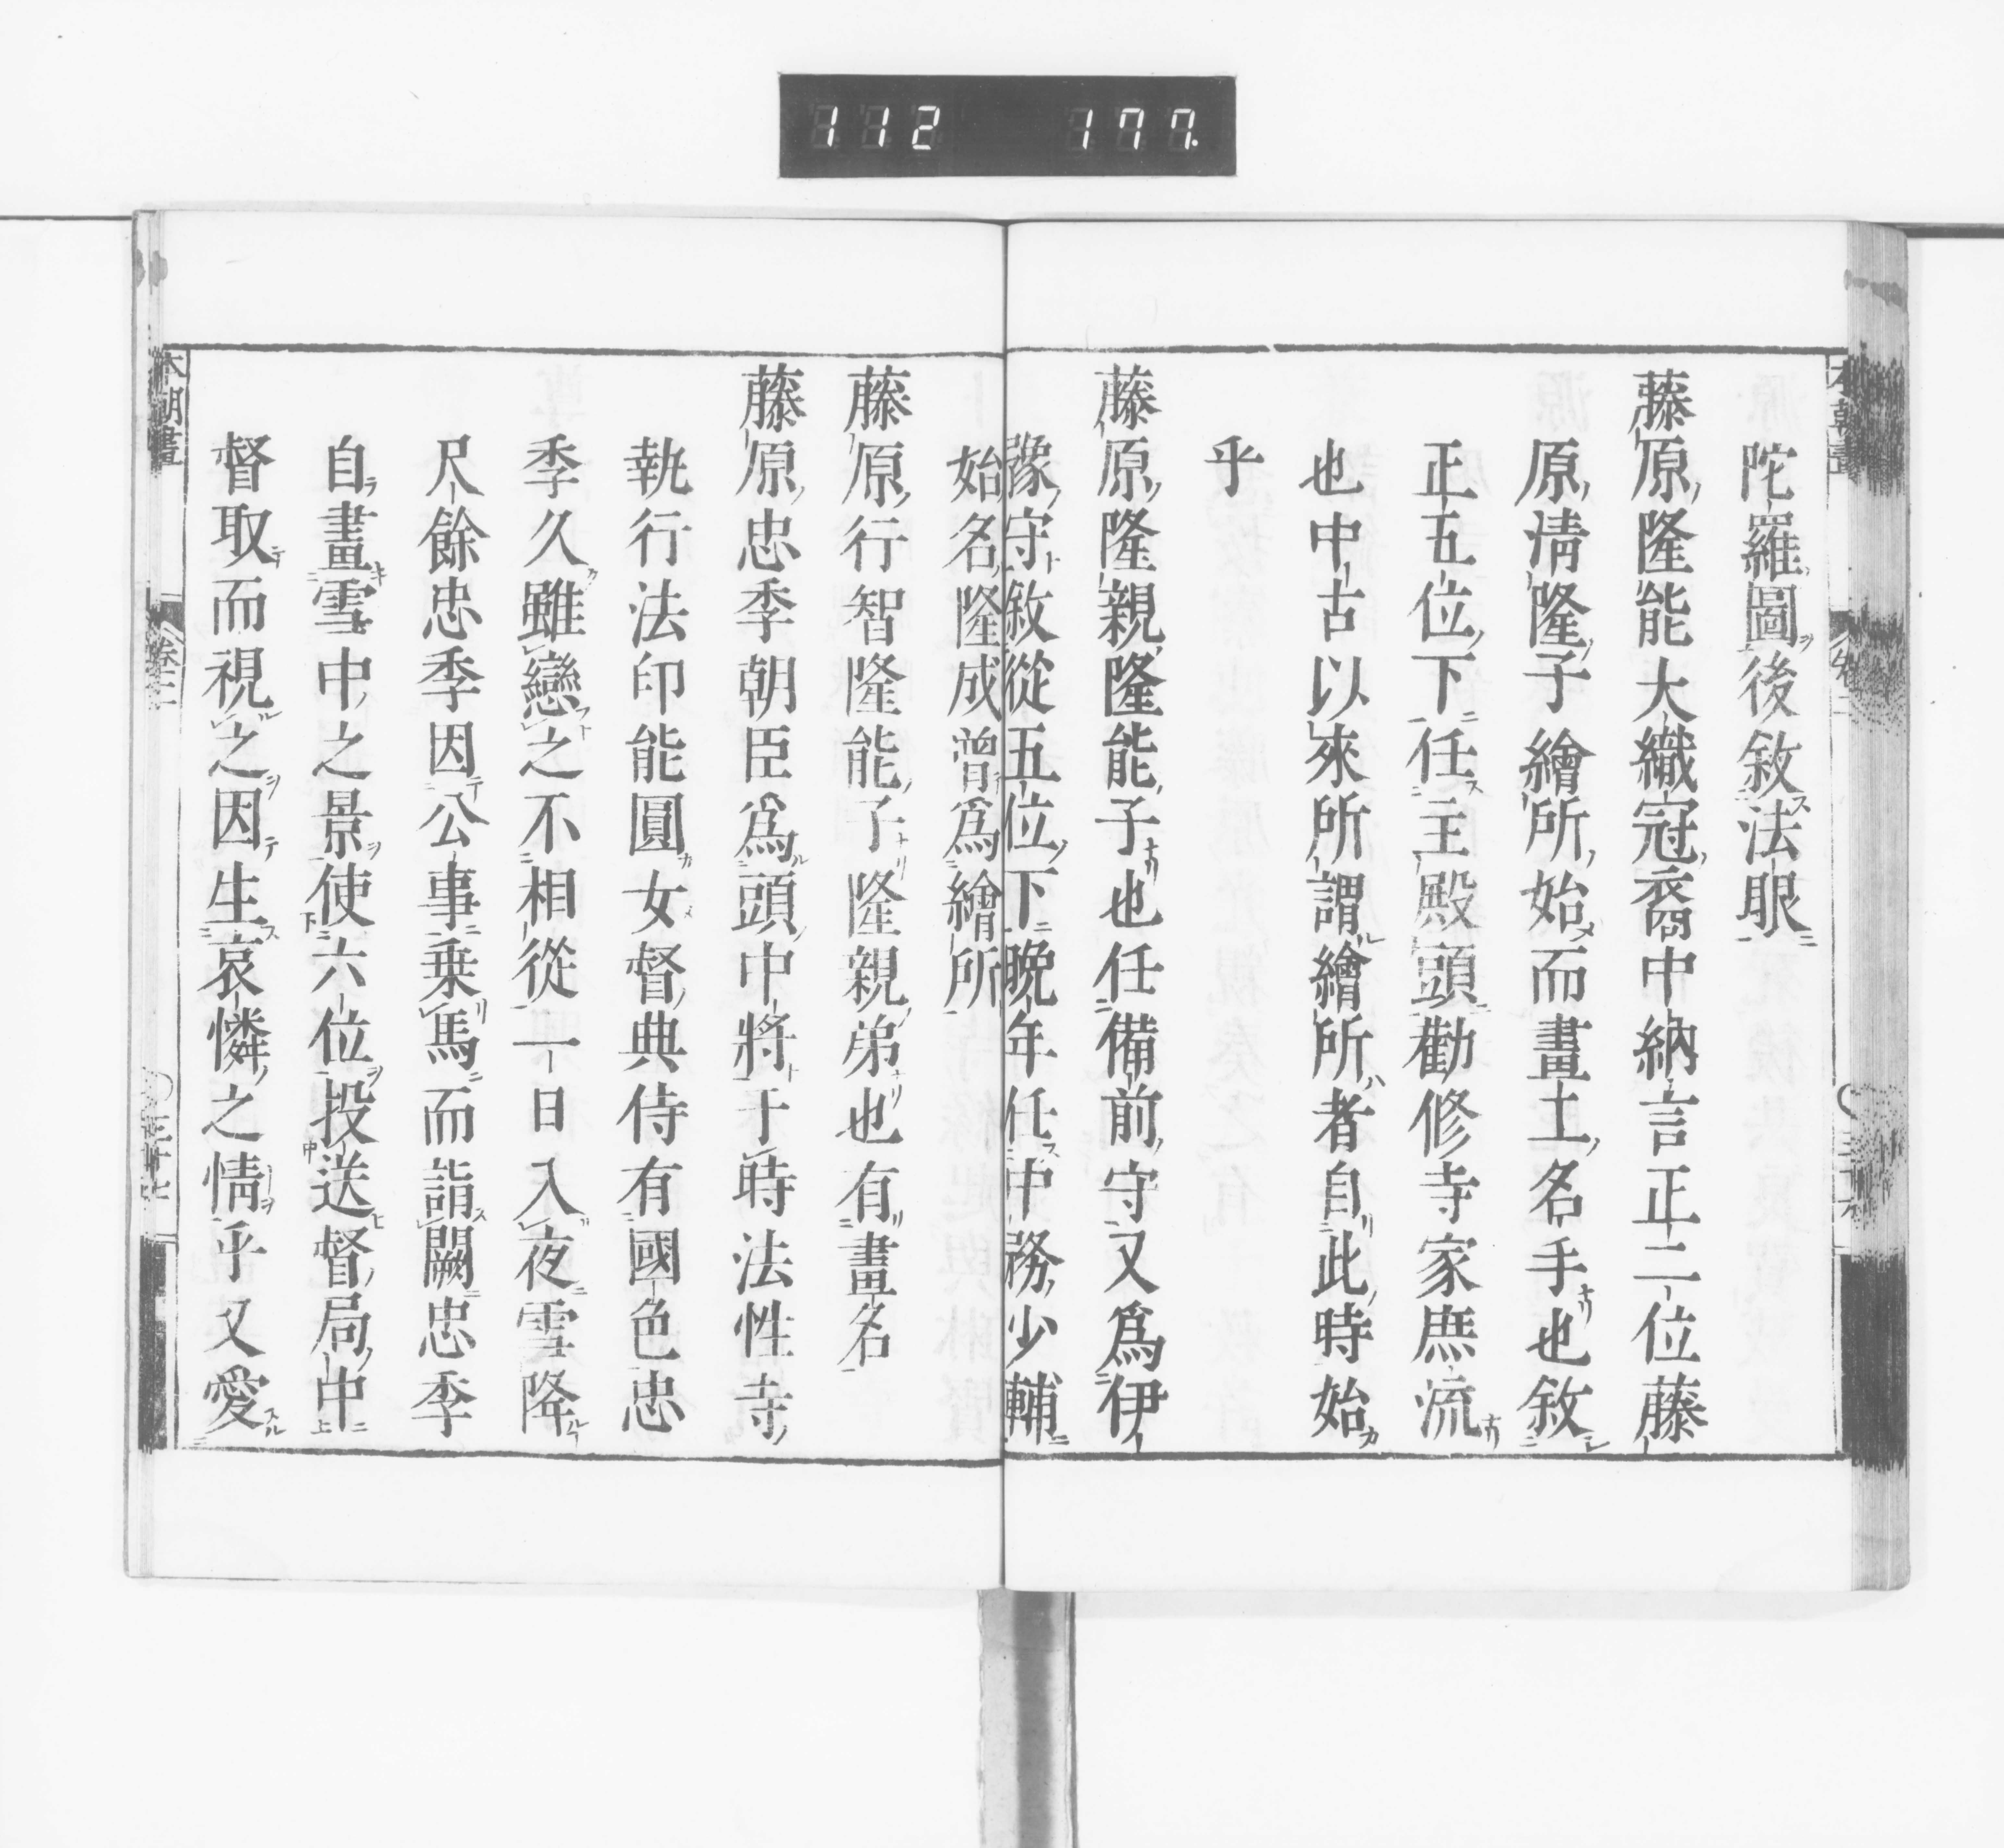 112 177.
陀羅圖後敘法眼
藤原隆能大織冠裔中納言正二位藤
原淸隆子繪所始而畫土名手也敘
正五位下任主殿頭勸修寺家庶流
也中古以來所謂繪所者自此時始
乎
藤原隆親隆能子也任備前守又爲伊
豫守敘從五位下晩年任中務少輔
始名隆成曾爲繪所
藤原行智隆能子隆親弟也有畫名
藤原忠季朝臣爲頭中將于時法性寺
執行法印能圓女督典侍有國色忠
季久雖戀之不相從一日入夜雪降
尺餘忠季因公事乗馬而詣闕忠季
自畫雪中之景使六位投送督局中
督取而視之因生哀憐之情乎又愛
本朝畫
卷二
三十七